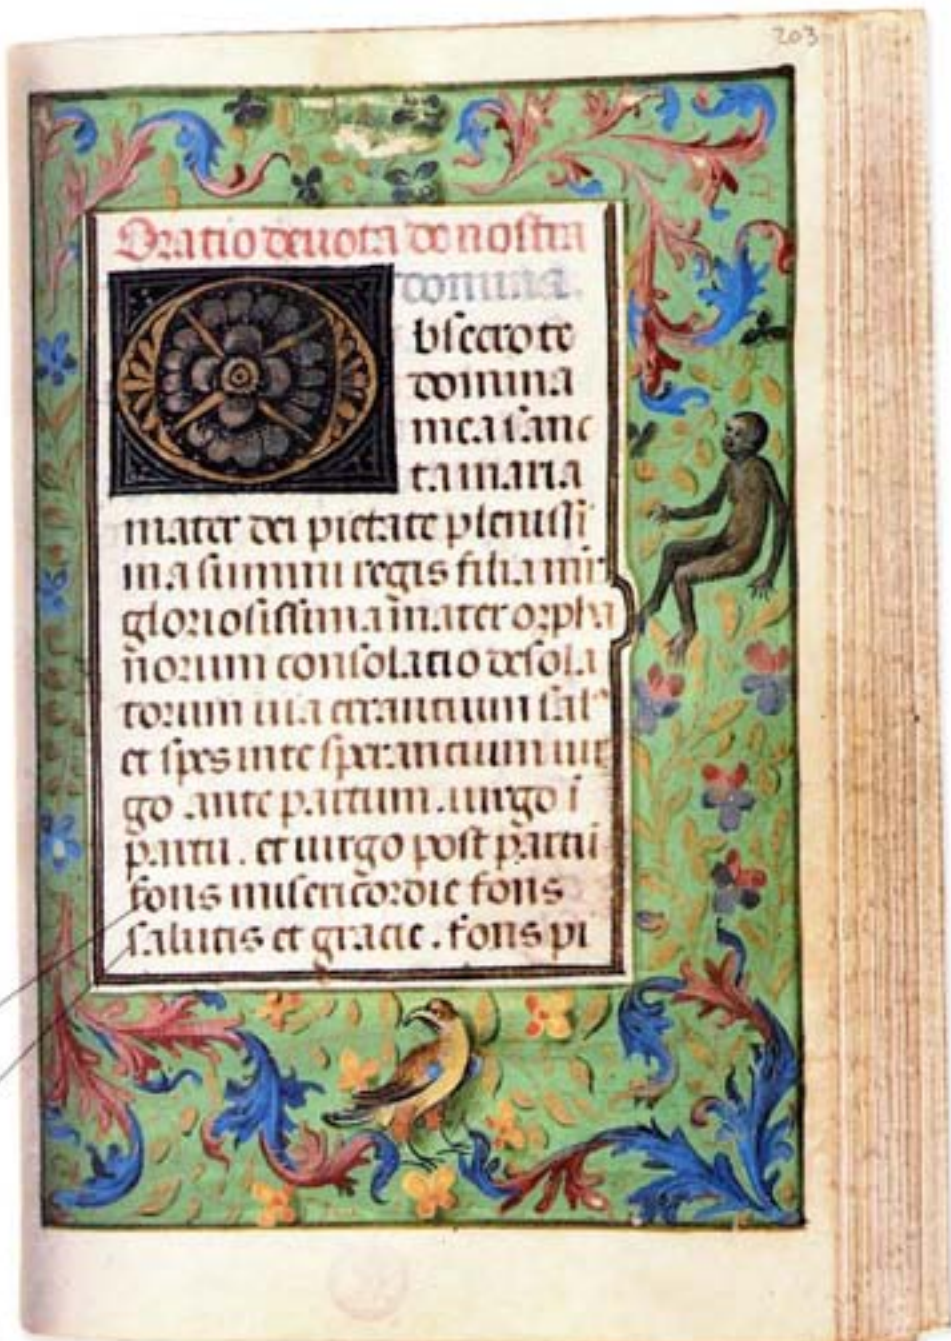 203
Oratio deuota de nostra
domina.
Obsecro te
domina
mea sanc
ta maria
mater dei pietate plenissi
ma summi regis filia
gloriosissima mater orpha
norum consolacio desola
torum uia errancium sal⁹
et spes in te sperancium uir
go ante partum. uirgo ī
partu. et uirgo post partū
fons misericordie fons
salutis et gracie. fons pi